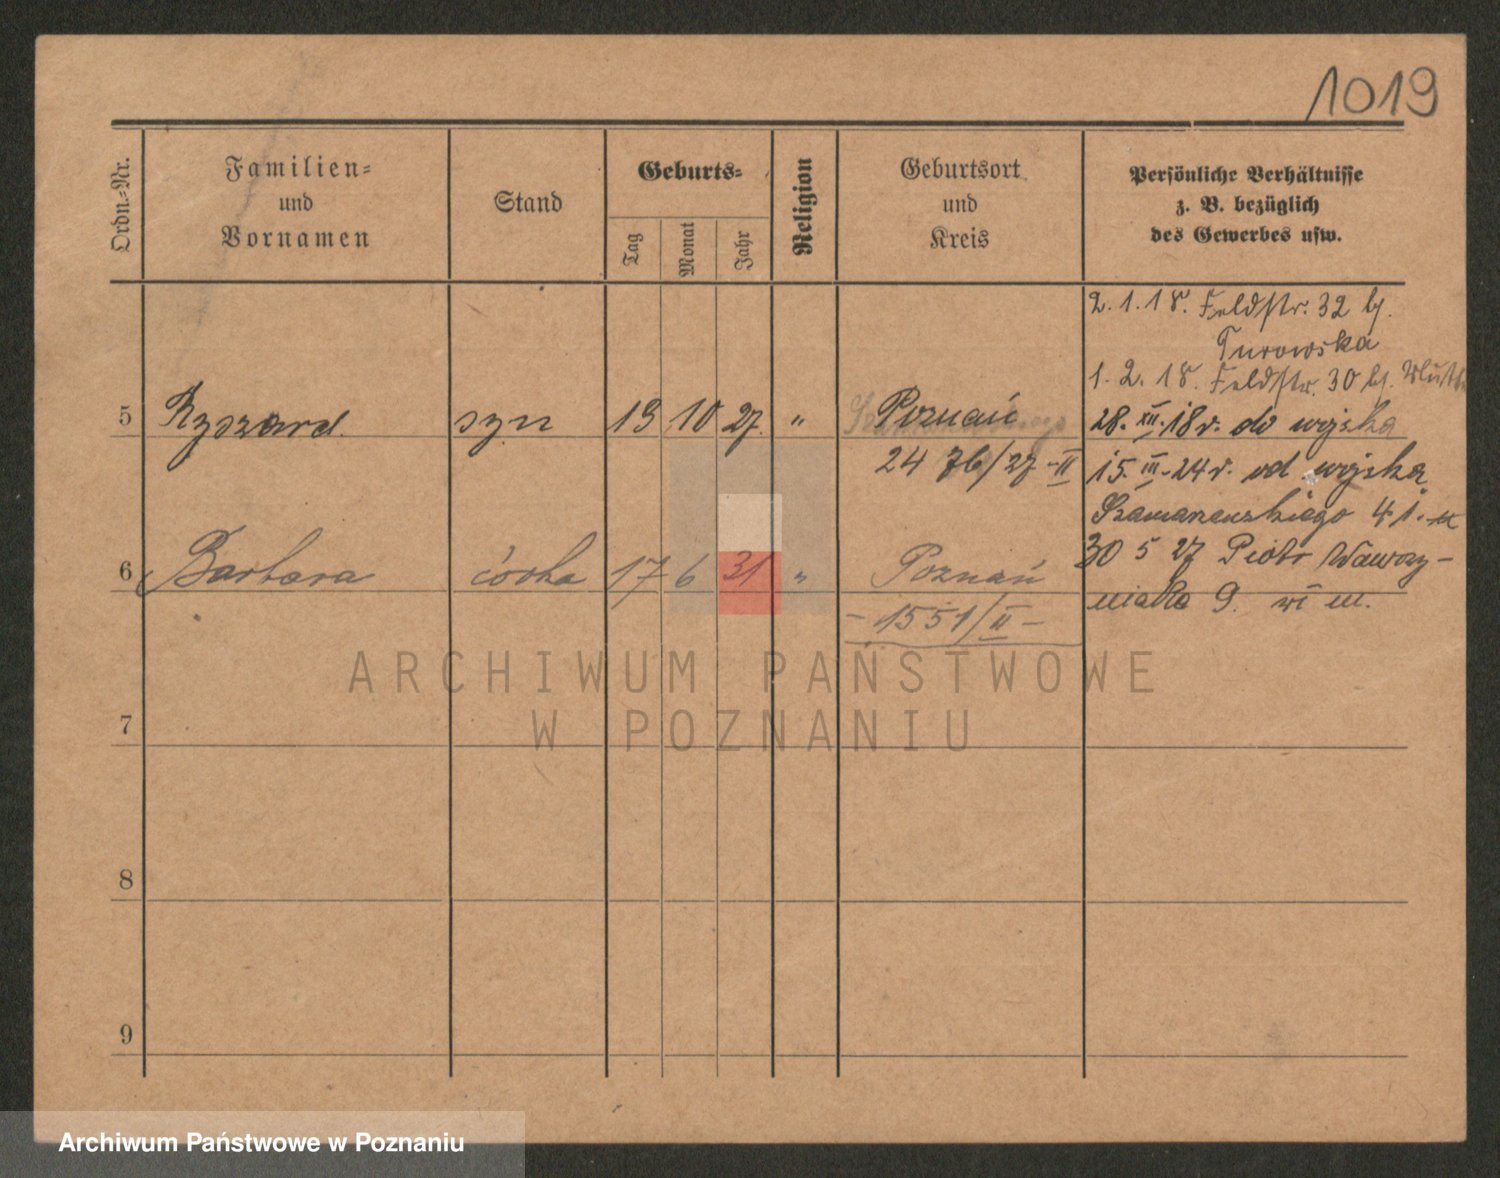 1019
Ordn.-Nr.
Familien-
und
Vornamen
Stand
Geburts-
Tag
Monat
Jahr
Religion
Geburtsort
und
Kreis
Persönliche Verhältnisse
z. B. bezüglich
des Gewerbes usw.
2.1.18. Feldstr. 32 bj.
Turowska
1.2.18. Feldstr. 30 bj.
5 Ryszard. syn 19 10 27. " Poznań 28. XII. 18 r. do wojska
24 76/27 - II 15. III - 24 r. od wojska
Szamarzewskiego 41.
6 Barbara córka 17 6 31 " Poznań 30 5 27 Piotr Wawrzy-
- 1551/II - niaka 9. m.
7
8
9
ARCHIWUM PAŃSTWOWE
W POZNANIU
Archiwum Państwowe w Poznaniu